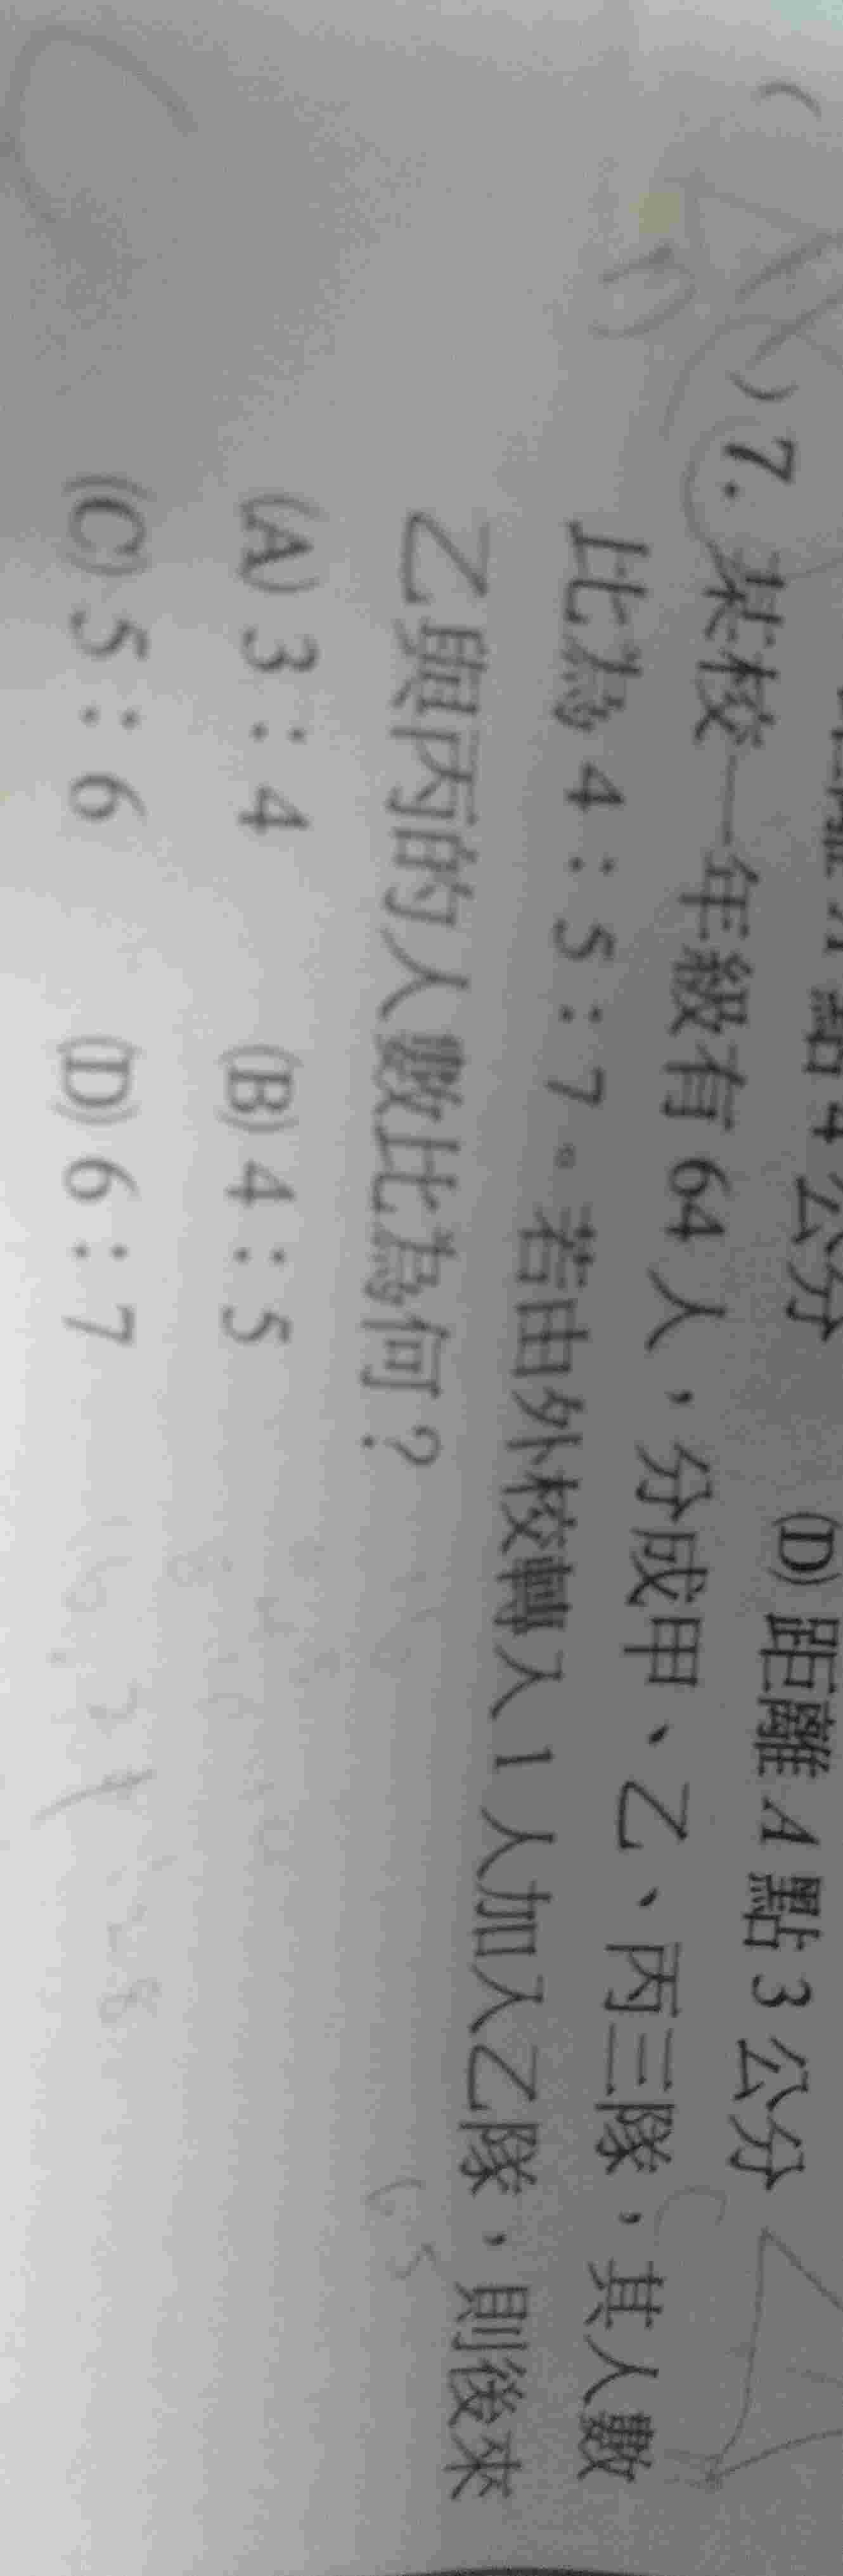 點 4 公分 (D) 距離 A 點 3 公分
( ) 7. 某校一年級有 64 人，分成甲、乙、丙三隊，其人數
比為 4：5：7。若由外校轉入 1 人加入乙隊，則後來
乙與丙的人數比為何？
65
(A) 3：4 (B) 4：5
(C) 5：6 (D) 6：7
28